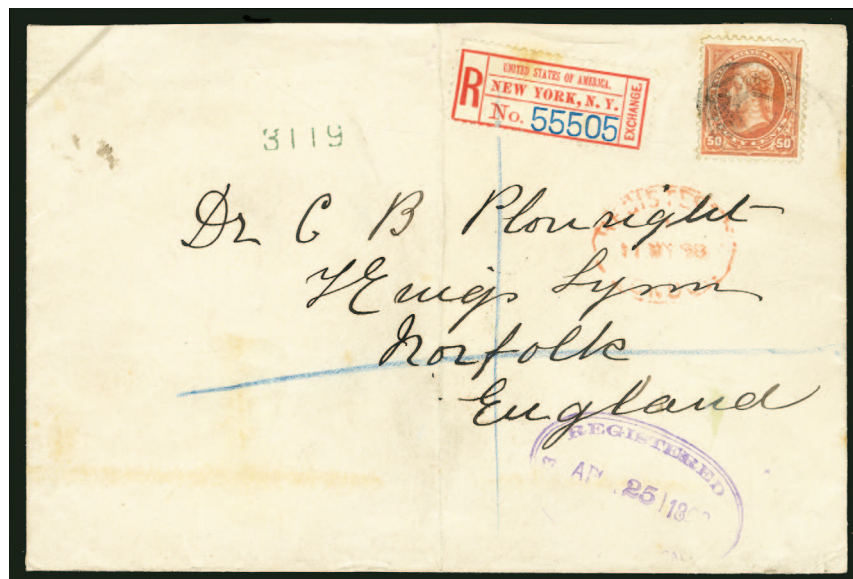 R
UNITED STATES OF AMERICA.
NEW YORK, N. Y.
No. 55505
EXCHANGE.
50 50
3119
Dr C B Plowright
Kings Lynn
Norfolk
England
REGISTERED
25 18